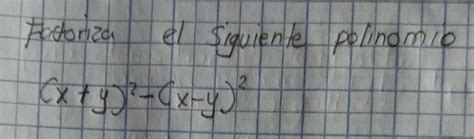 Factoriza el siguiente polinomio
(x+y)²-(x-y)²